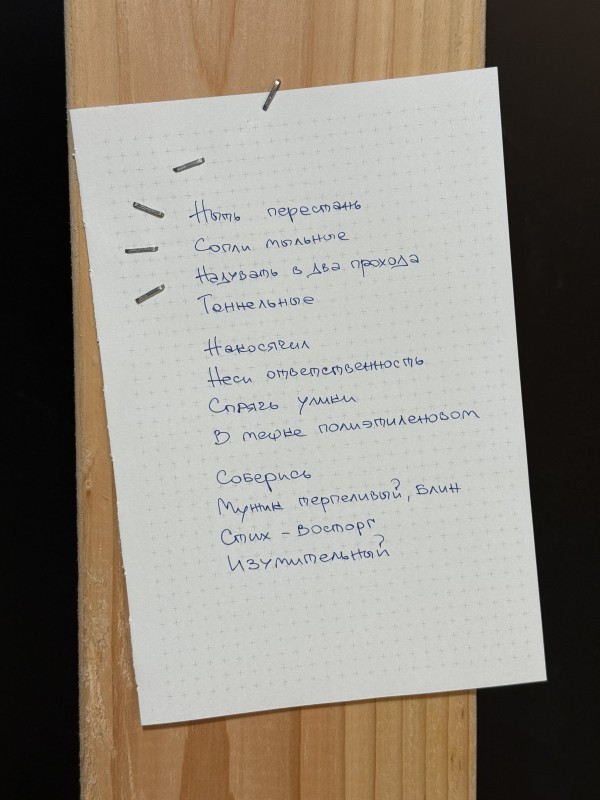 Ныть перестань
Сопли мыльные
Надувать в два прохода
Тоннельные
Накосячил
Неси ответственность
Спрячь улики
В мешке полиэтиленовом
Соберись
Мужик терпеливый, блин
Стих - восторг
Изумительный